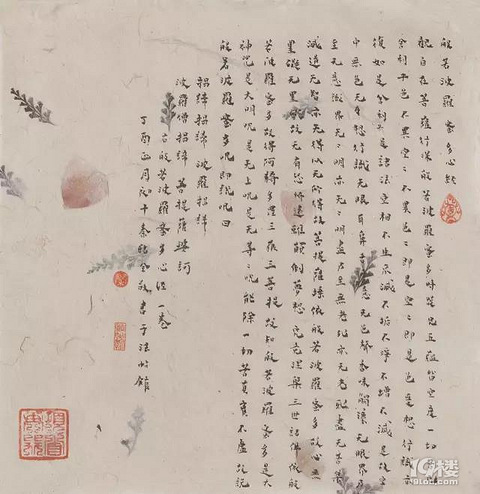 般若波羅蜜多心經
觀自在菩薩行深般若波羅蜜多時照見五蘊皆空度一切
舍利子色不異空々不異色々即是空々即是色受想行識亦
復如是舍利子是諸法空相不生不滅不垢不淨不增不減是故空
中无色无受想行識无眼耳鼻舌身意无色聲香味觸法无眼界乃
至无意識界无々明亦无々明盡乃至无老死亦无老死盡无苦集
滅道无智亦无得以无所得故菩提薩埵依般若波羅蜜多故心无
罣礙无罣礙故无有恐怖遠離顛倒夢想究竟涅槃三世諸佛依般
若波羅蜜多故得阿耨多羅三藐三菩提故知般若波羅蜜多是大
神咒是大明咒是无上咒是无等々咒能除一切苦真實不虛故說
般若波羅蜜多咒即說咒曰
揭諦揭諦 波羅揭諦
波羅僧揭諦 菩提薩婆訶
右般若波羅蜜多心經一卷
丁酉正月初十秦 敬書于法帖館
19楼
19lou.com